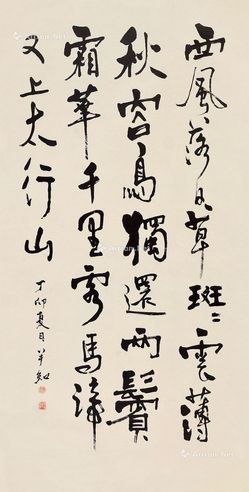 西風落日草斑々雲薄
秋容鳥獨還兩鬢
霜華千里客馬蹄
又上太行山
丁卯夏月